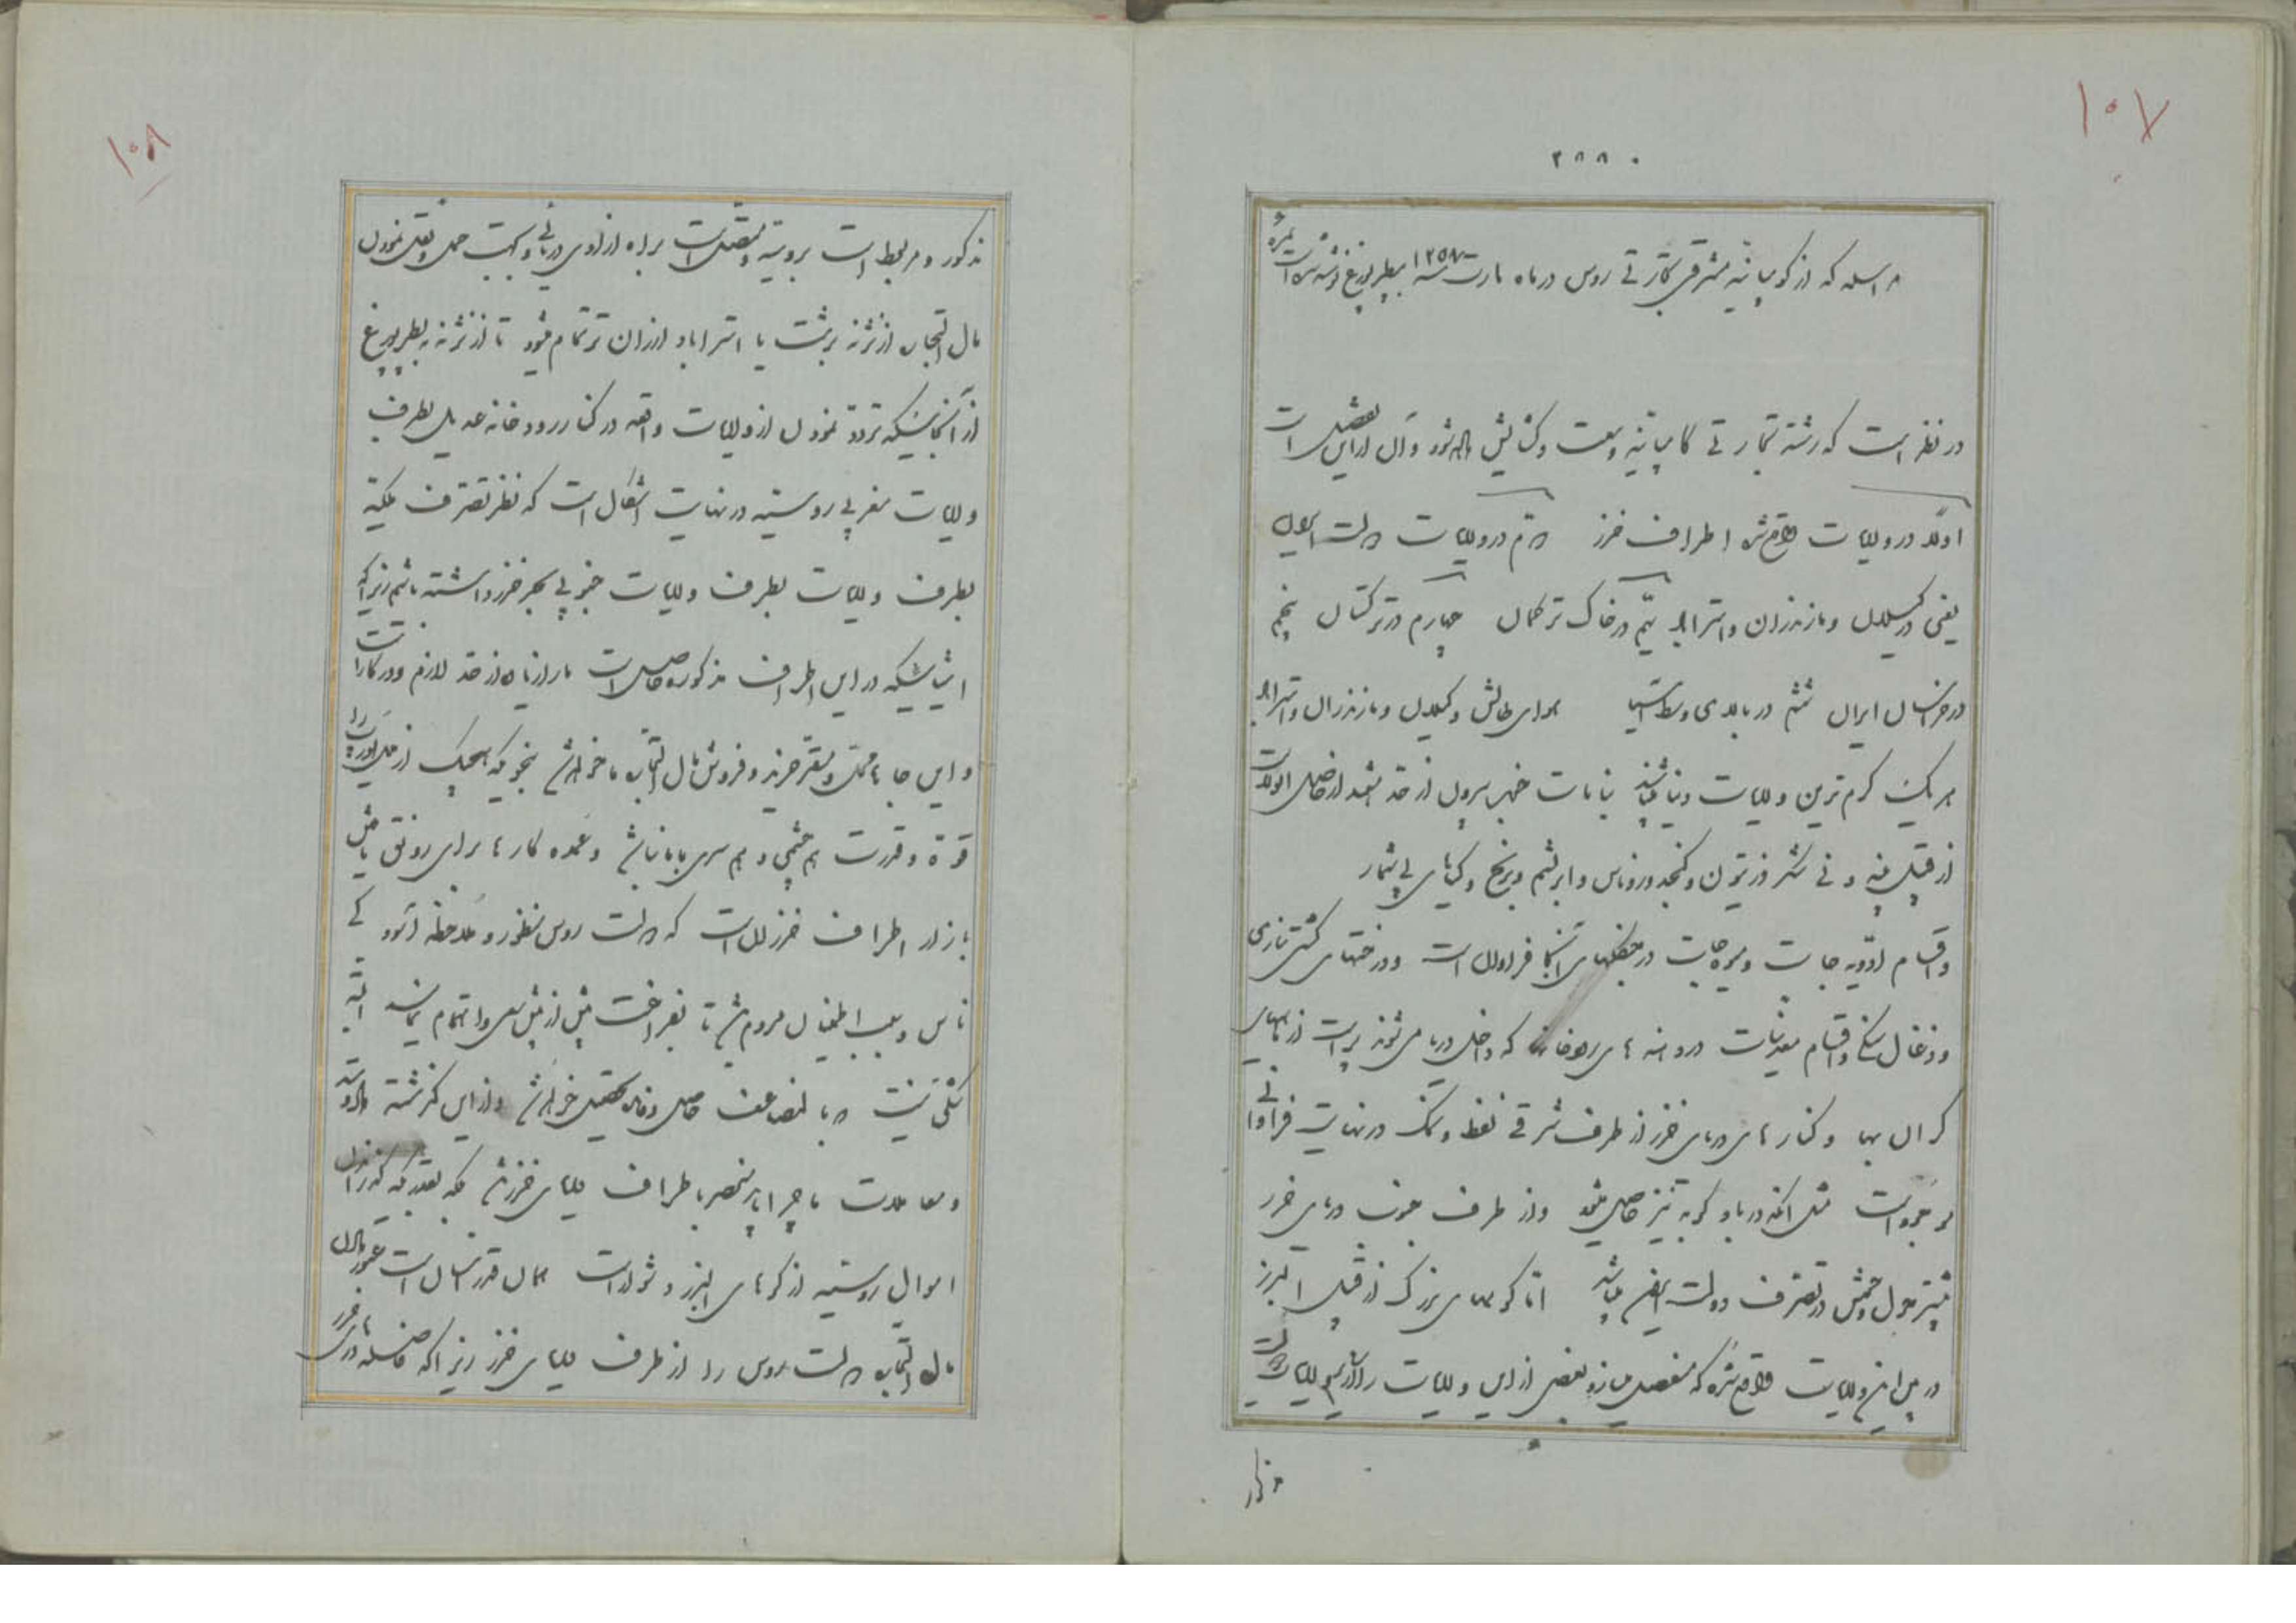 ۱۰۷
۲۸۸۰
مراسله که از کومپانیه مشرقی تجارتی روس در ماه مارت سنه ۱۲۵۸ بپطربورغ نوشته شده است
در نظر است که رشته تجارتی کامپانیه وسعت و گشایش داده شود و آن از این تفصیل است
اولا در ولایات واقع شده اطراف خزر دویم در ولایات دولت ایران
یعنی در گیلان و مازندران و استراباد سیم در خاک ترکمان چهارم در ترکستان پنجم
در خراسان ایران ششم در بلادی وسط آسیا هوای طالش و گیلان و مازندران و استراباد
هر یک گرم ترین ولایات دنیا میباشند نباتات بیرون از حد از حاصل
از قبیل پنبه و نی شکر و زیتون و کنجد و روناس و ابریشم و برنج و گیاهای بی شمار
و اقسام ادویه جات و میوه جات در جنگلهای آنجا فراوان است و درختهای کشتی سازی
و ذغال سنگی و اقسام معدنیات در دهنه های رودخانه که داخل دریا می شوند پر است از ماهیهای
گران بها و کنارهای دریای خزر از طرف شرقی نفط و نمک در نهایت فراوانی
موجود است مثل آنکه در بادکوبه نیز حاصل میشود و از طرف جنوب دریای خزر
در تصرف دولت ایران میباشد اما کوههای بزرگ از قبیل البرز
در میان این ولایات واقع شده که منفصل میسازد بعضی از این ولایات را از ولایات
مذکور
۱۰۸
مذکور و مربوط است بروسیه و متصل است براه ازادی دریائی و بجهت حمل و نقل نمودن
مال التجاره از نژنه برشت یا استراباد ارزان تر تمام میشود تا از نژنه به پطربورغ
از آنجائیکه تردد نمودن از ولایات واقعه در کنار رودخانه بطرف
ولایات مغربی روسیه در نهایت اشکال است که نظر تصرف ملکیه
بطرف ولایات بطرف ولایات جنوبی بحر خزر داشته باشیم زیرا که
اشیائیکه در این اطراف مذکوره حاصل است ما را زیاده از حد لازم و در کار است
و این جا ها محل و مقر خرید و فروش مال التجاره ما خواهد شد بنحویکه هیچیک از ملل یوروپ را
قوة و قدرت هم چشمی و هم سری با ما نباشد و عمده کارها برای رونق یافتن
بازار اطراف خزر آن است که دولت روس منظور و ملاحظه
ناس و سبب اطمینان مردم شود تا بفراغت بیش از پیش سعی و اهتمام نمایند البته
شکی نیست و با لمضاعف حاصل و فایده تحصیل خواهد شد و از این گذشته داد و ستد
و معاملات ما چرا باید منحصر باطراف دریای خزر شود بلکه بقدریکه گذراندن
اموال روسیه از کوهای البرز دشوار است همان قدر آسان است عبور دادن
مال التجاره دولت روس را از طرف دریای خزر زیرا که فاصله دریای خزر